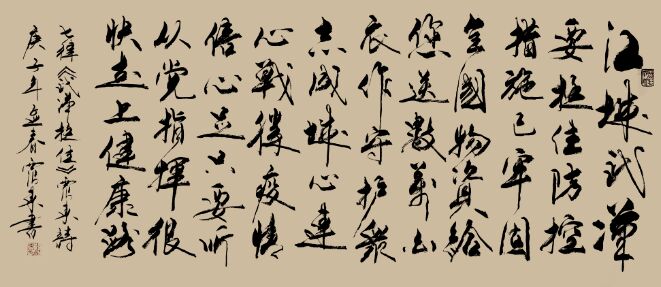 江城武漢
要挺住防控
措施已牢固
全國物資給
您送數萬白
衣作守护衆
志成城心連
心戰勝疫情
信心足只要听
从党指揮很
快走上健康路
七律《武漢挺住》詩
庚子年迎春書